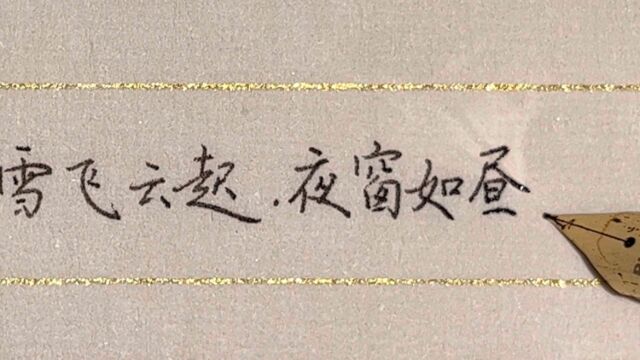 雪飞云起.夜窗如昼